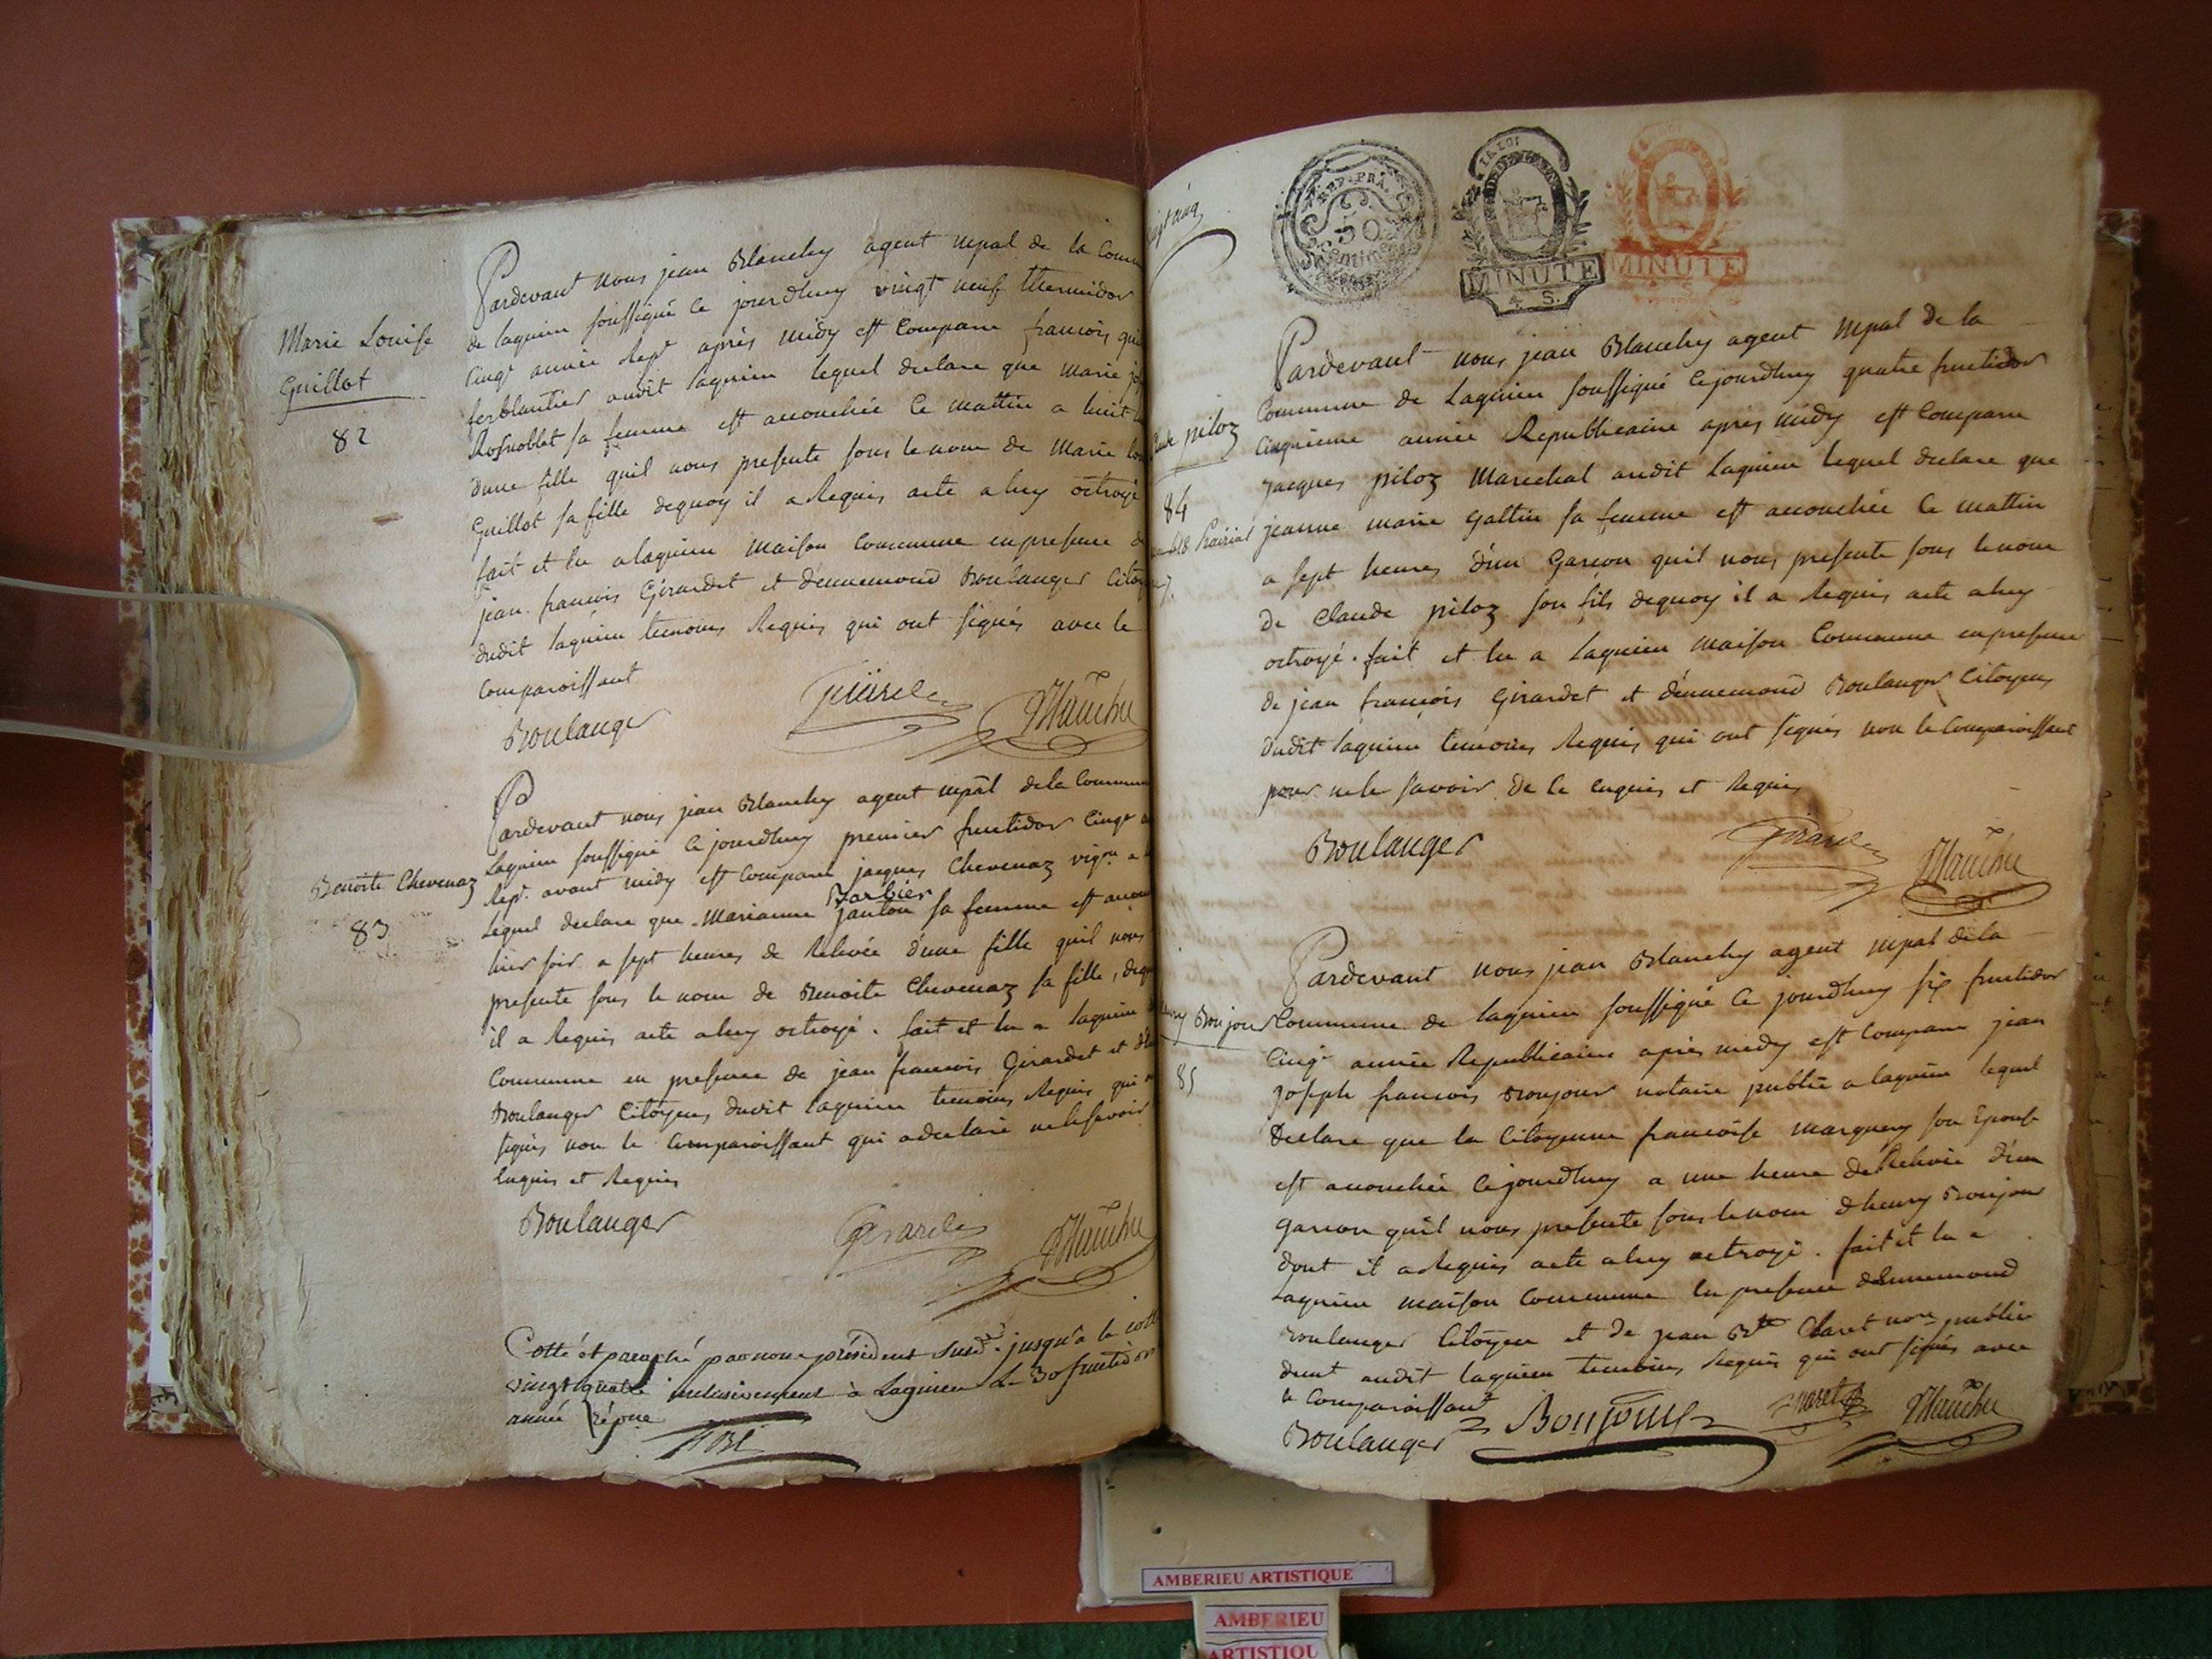 Pardevant nous jean Blanchy agent mpal de la Comm
de lagnieu soussigné ce jourdhuy vingt neuf thermidor
Cinqe année Rept après midy est Comparu francois
ferblantier audit lagnieu lequel declare que marie
Rosnoblet sa femme est accouchée ce mattin a huit
dune fille quil nous presente sous le nom de marie
Guillot sa fille dequoy il a Requis acte a luy octroyé
fait et lu a lagnieu maison Commune en presence
jean francois Girardet et d'ennemond Boulanger Citoy
dudit lagnieu temoins Requis qui ont signés avec le
Comparoissant
Marie Louise
Guillot
82
Boulanger Girardet Blanchy
Pardevant nous jean Blanchy agent mpal dela Commun
Lagnieu soussigné ce jourdhuy premier fructidor Cinqe
Rept avant midy est Comparu jacques Chevenaz vigon a
Barbier
Lequel declare que Marianne janton sa femme est accou
hier soir a sept heures de Relevée d'une fille quil nous
presente sous le nom de Benoite Chevenaz sa fille, deq
il a Requis acte a luy octroyé. fait et lu a lagnieu
Commune en presence de jean francois Girardet et
Boulanger Citoyens dudit lagnieu temoins Requis qui
signés non le Comparoissant qui a declaré ne le savoir
Enquis et Requis
Benoite Chevenaz
83
Boulanger Girardet Blanchy
Cotté et paraphé par nous président susd. jusqu'à la cott
vingt quatre inclusivement à Lagnieu Le 30 fructidor
année
REP. FRA.
50
Centimes
LA LOI
MINUTE
4 S.
LA LOI
MINUTE
Pardevant nous jean Blanchy agent mpal de la
Commune de Lagnieu soussigné cejourdhuy quatre fructidor
Cinquieme année Republicaine apres midy est Comparu
jacques piloz Marechal audit Lagnieu lequel declare que
jeanne marie gattin sa femme est accouchée ce mattin
a sept heures d'un Garçon quil nous presente sous le nom
de Claude piloz son fils dequoy il a Requis acte a luy
octroyé. fait et lu a Lagnieu maison Commune en presence
de jean françois Girardet et d'ennemond Boulanger Citoyens
dudit lagnieu temoins Requis qui ont signés non le Comparoissant
pour ne le savoir de ce enquis et Requis
piloz
84
18 Prairial
Boulanger Girardet Blanchy
Pardevant nous jean Blanchy agent mpal dela
Commune de lagnieu soussigné ce jourdhuy six fructidor
Cinqe année Republicaine après midy est Comparu jean
joseph francois Bonjour notaire public a lagnieu lequel
declare que la Citoyenne francoise marguery son Epouse
est accouchée cejourdhuy a une heure de Relevée d'un
garcon quil nous presente sous le nom dhenry Bonjour
dont il a Requis acte a luy octroyé. fait et lu a
Lagnieu maison Commune en presence dEnnemond
Boulanger Citoyen et de jean Bte Claret nore public
audit lagnieu temoins Requis qui ont signés avec
le Comparoissant
Bonjour
85
Boulanger Bonjour Claret Blanchy
AMBERIEU ARTISTIQUE
AMBERIEU
ARTISTIQU